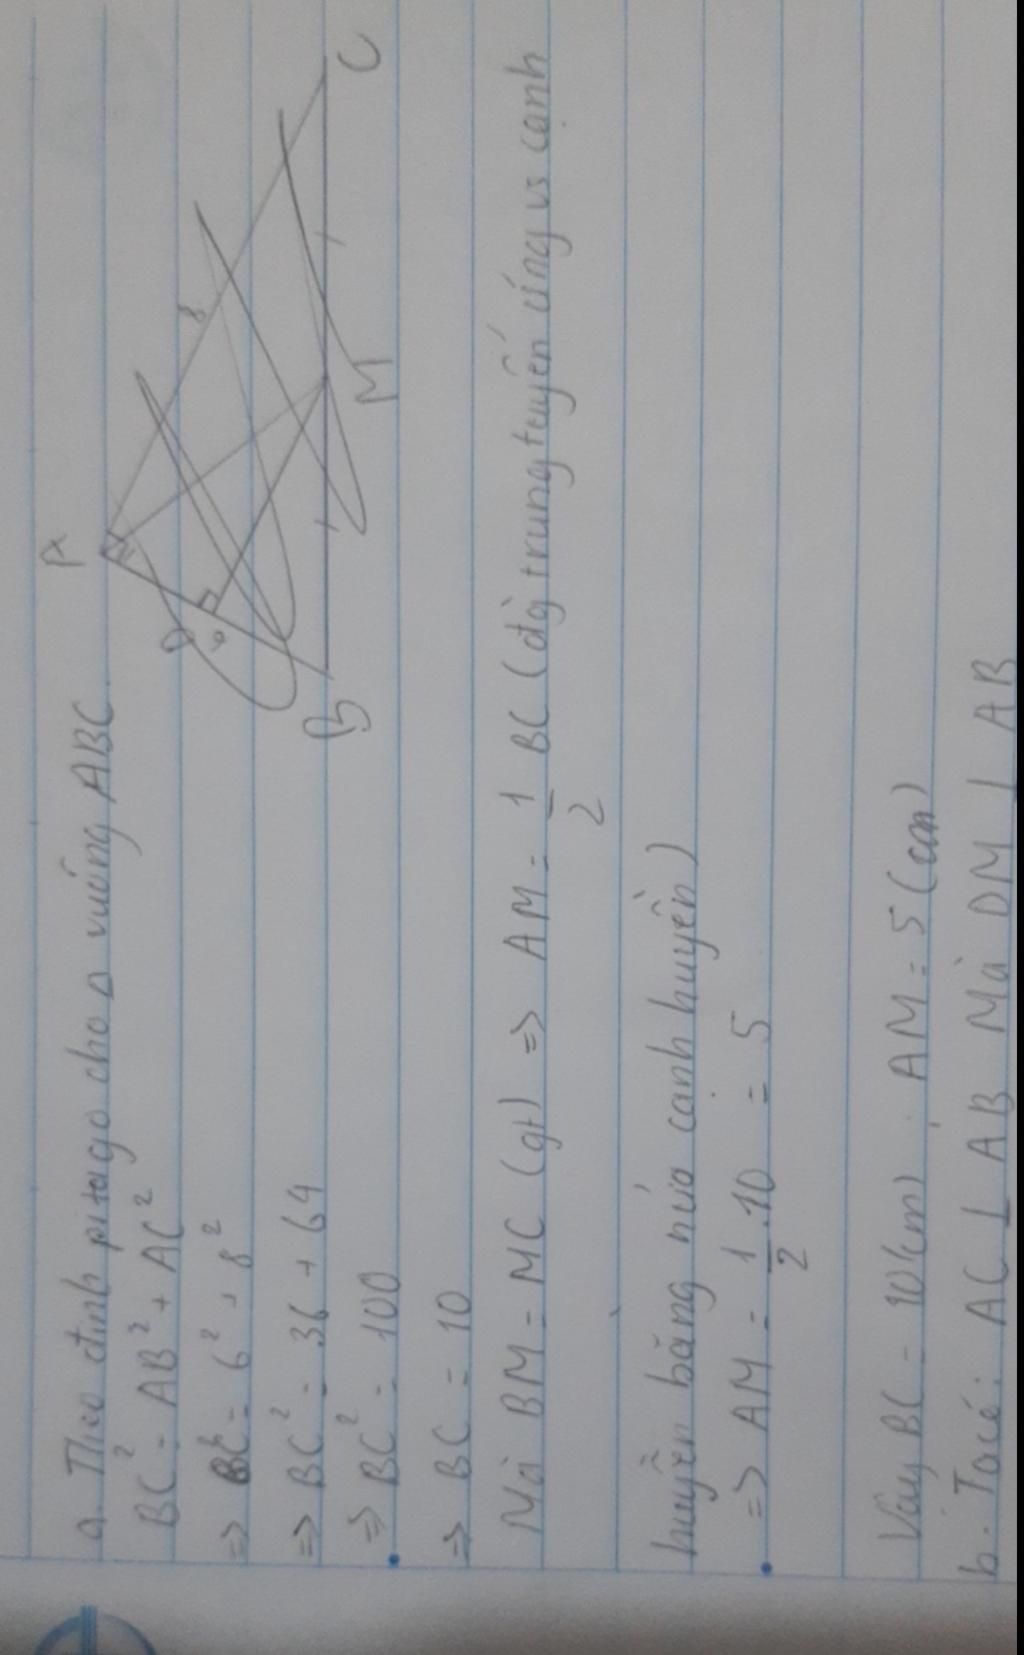 a. Theo định pitago cho Δ vuông ABC.
BC² = AB² + AC²
=> BC² = 6² + 8²
=> BC² = 36 + 64
=> BC² = 100
=> BC = 10
Mà BM = MC (gt) => AM = 1/2 BC (đg trung tuyến ứng vs cạnh
huyền bằng nửa cạnh huyền)
=> AM = 1/2 . 10 = 5
Vậy BC = 10(cm) . AM = 5 (cm)
b. Ta có: AC ⊥ AB Mà DM ⊥ AB
A
D
6
8
B
M
C